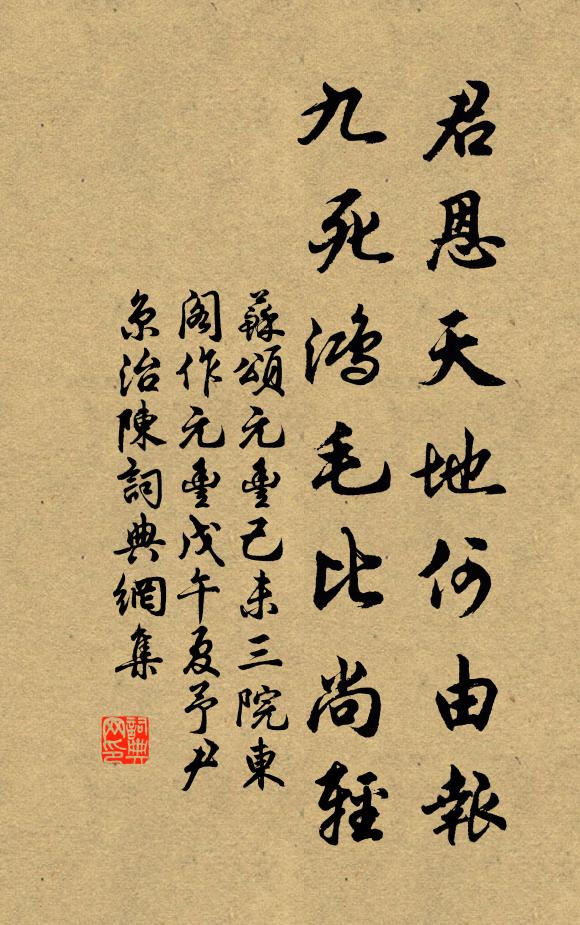 君恩天地何由報
九死鴻毛比尚輕
蘇頌元豐己未三院東
閣作元豐戊午夏予尹
京治陳詞典網集
詞典
网印